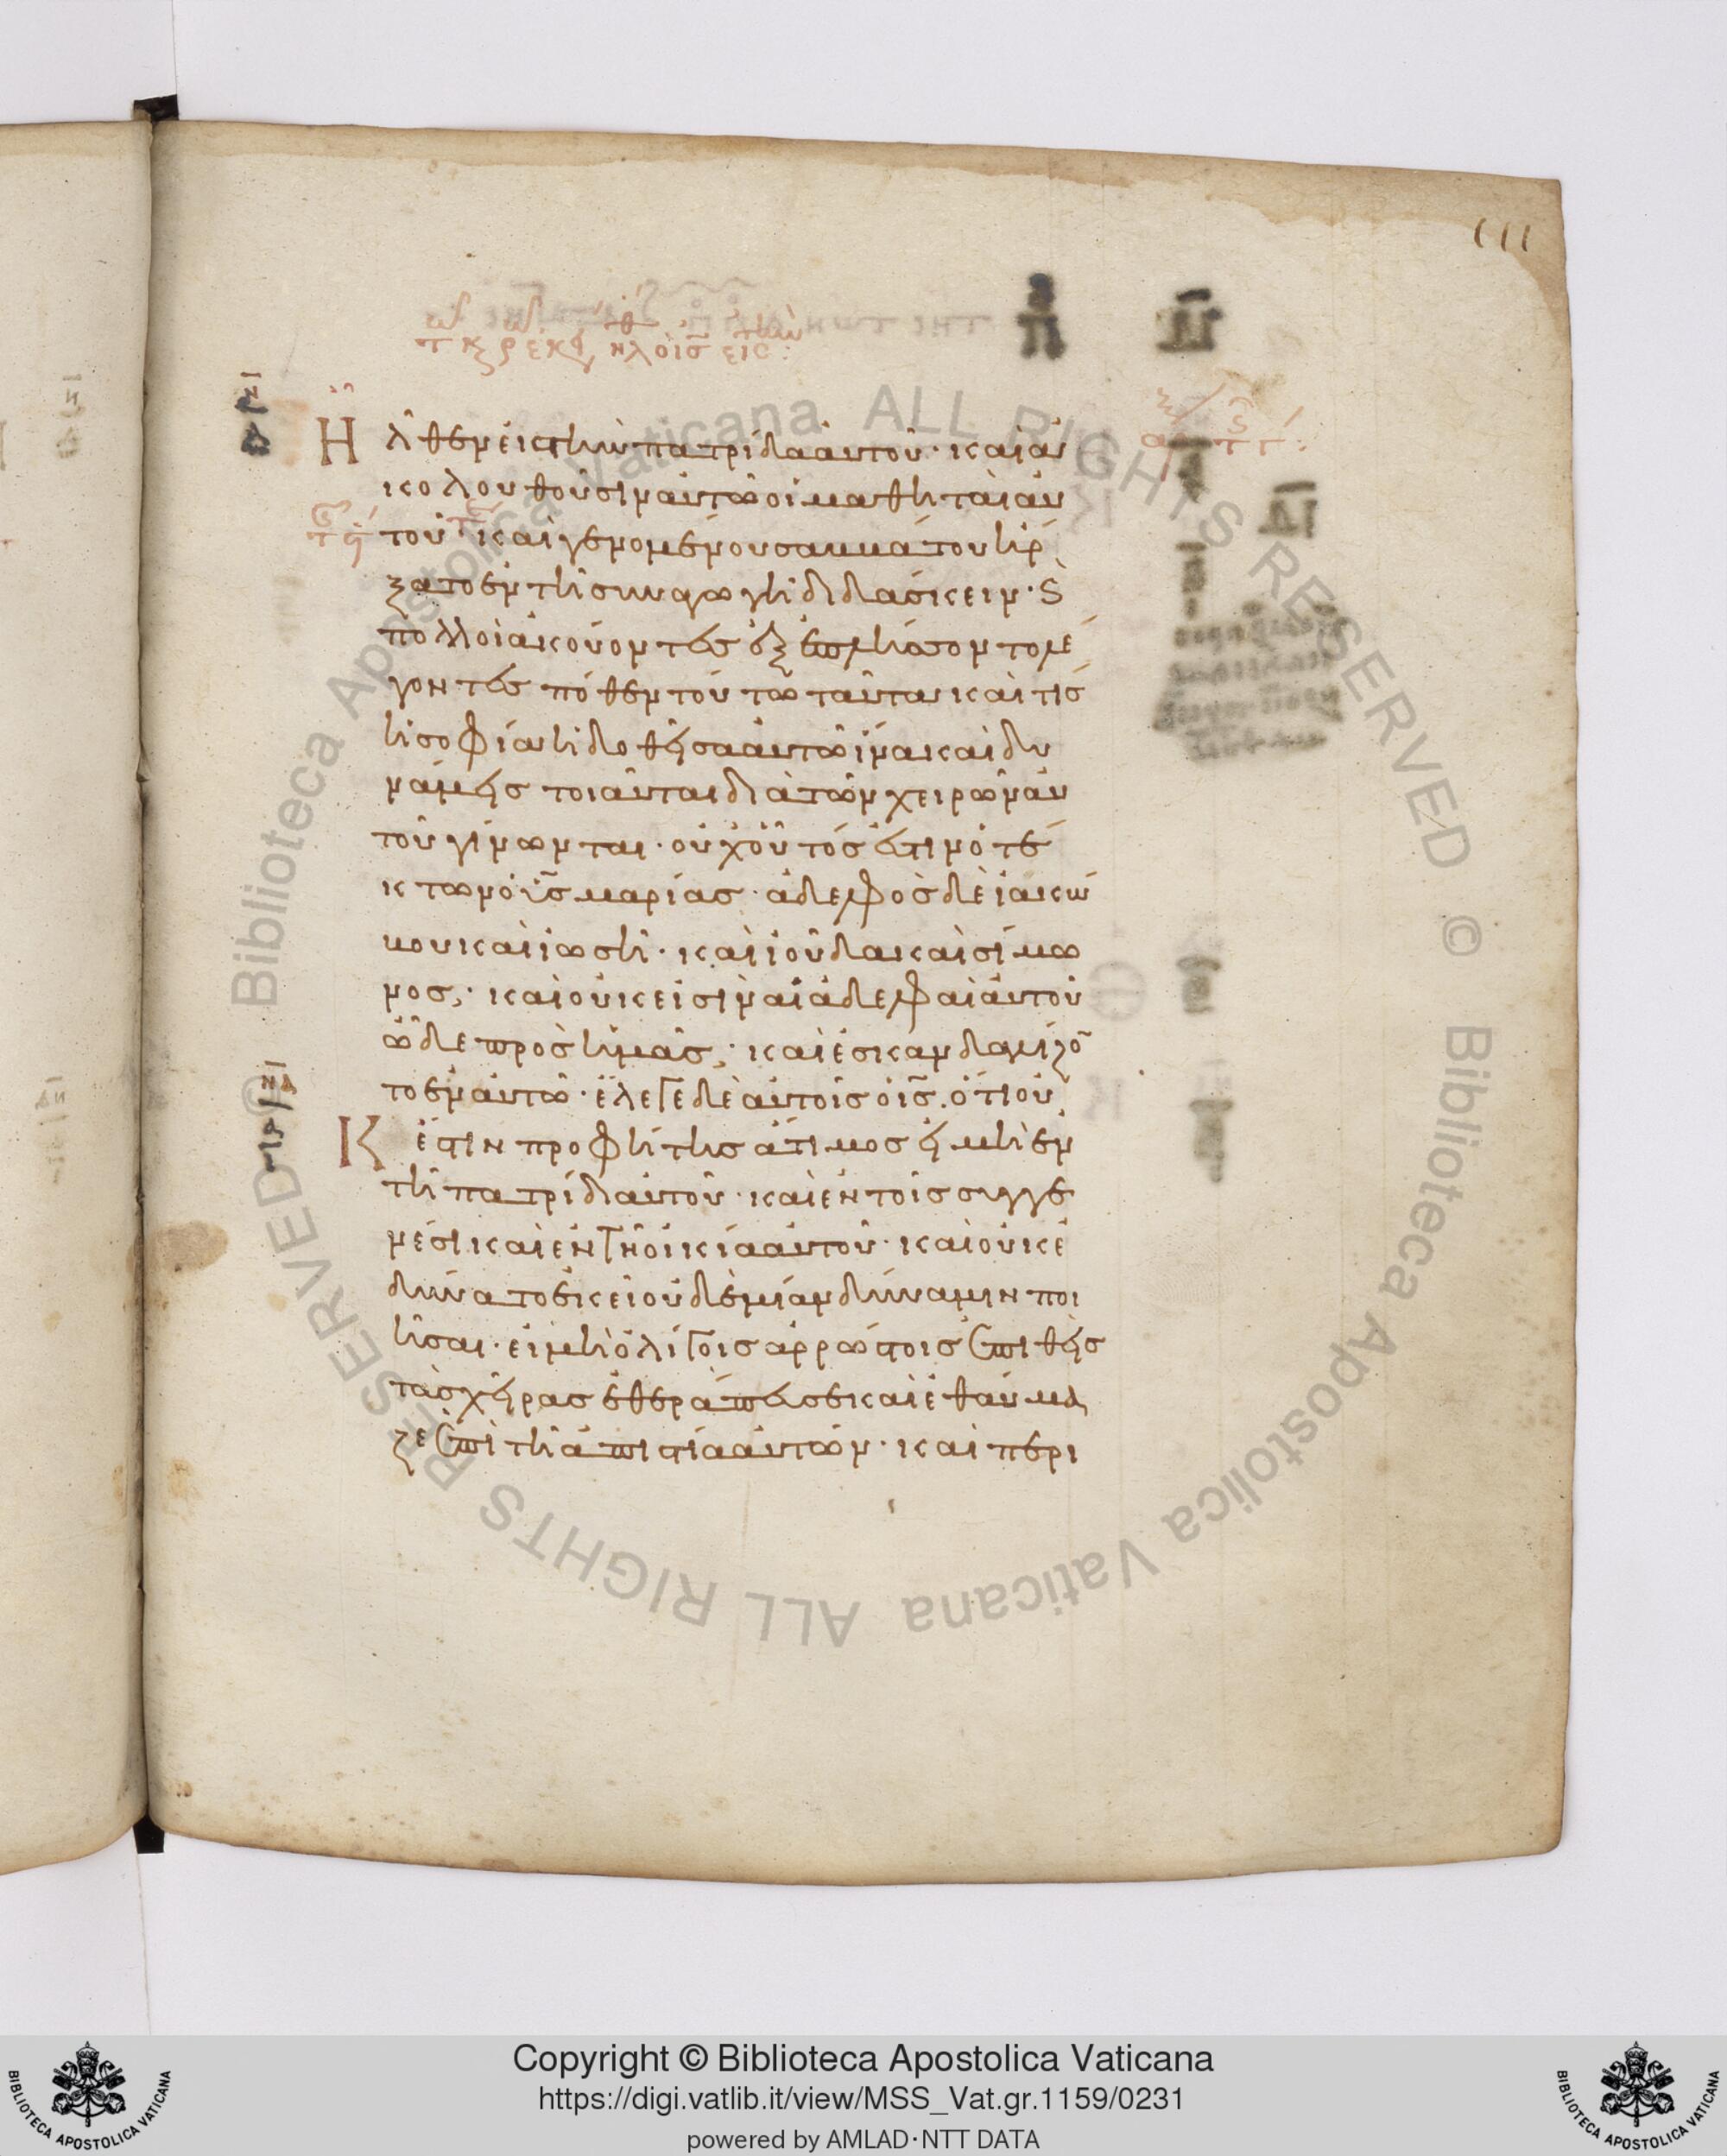 111
Ἦλθεν εἰς τὴν πατρίδα αὐτοῦ· καὶ ἀ
κολουθοῦσιν αὐτῶ οἱ μαθηταὶ αὐ
τοῦ· καὶ γενομένου σαββάτου ἤρ
ξατο ἐν τῆ συναγωγῆ διδάσκειν· ϗ
πολλοὶ ἀκούοντες ἐξεπλήσσοντο λέ
γοντες πόθεν τούτω ταῦτα καὶ τίς
ἡ σοφία ἡ δοθεῖσα αὐτῶ ἵνα καὶ δυ
νάμεις τοιαῦται διὰ τῶν χειρῶν αὐ
τοῦ γίνωνται· οὐχ οὗτός ἐστιν ὁ τέ
κτων ὁ υἱς μαρίας· ἀδελφὸς δὲ ἰακώ
βου καὶ ἰωσῆ· καὶ ἰούδα καὶ σίμω
νος; καὶ οὐκ εἰσὶν αἱ ἀδελφαὶ αὐτοῦ
ὧδε πρὸς ἡμᾶς; καὶ ἐσκανδαλίζο
το ἐν αὐτῶ· ἔλεγε δὲ αὐτοῖς ὁ ις. ὅτι οὐ
κ ἔστιν προφήτης ἄτιμος εἰ μὴ ἐν
τῆ πατρίδι αὐτοῦ· καὶ ἐν τοῖς συγγε
νέσι καὶ ἐν τῆ οἰκία αὐτοῦ· καὶ οὐκ ἐ
δύνατο ἐκεῖ οὐδεμίαν δύναμιν ποι
ῆσαι· εἰ μὴ ὀλίγοις ἀρρώστοις ἐπιθεὶς
τὰς χεῖρας ἐθεράπευσε καὶ ἐθαύμα
ζε ἐπὶ τῆ ἀπιστία αὐτῶν· καὶ περι
Copyright © Biblioteca Apostolica Vaticana
https://digi.vatlib.it/view/MSS_Vat.gr.1159/0231
powered by AMLAD·NTT DATA
BIBLIOTECA APOSTOLICA VATICANA
BIBLIOTECA APOSTOLICA VATICANA
Biblioteca Apostolica Vaticana ALL RIGHTS RESERVED © Biblioteca Apostolica Vaticana ALL RIGHTS RESERVED ©